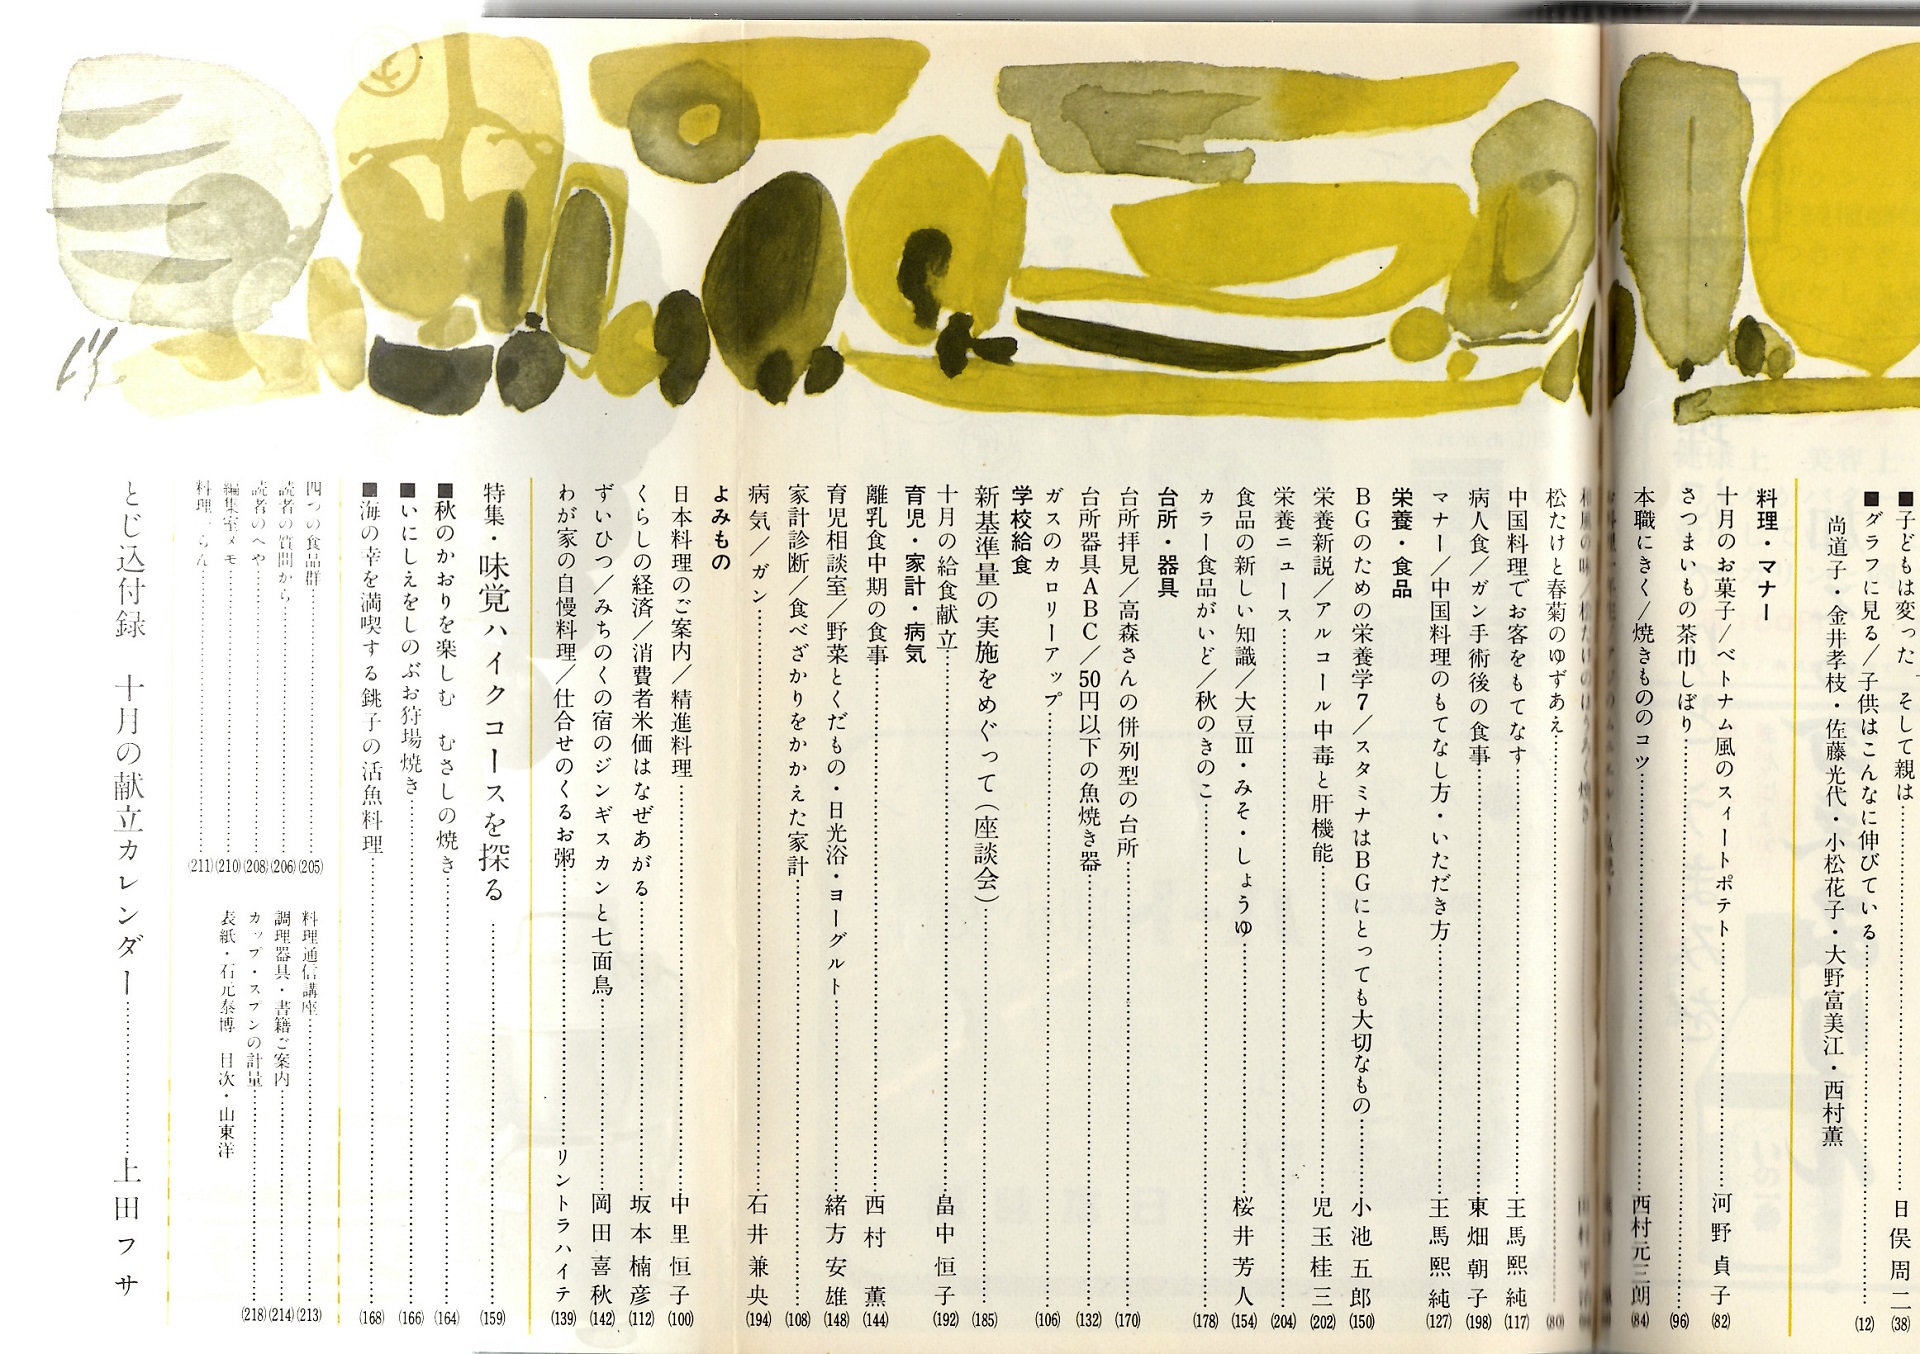 ■子どもは変った そして親は 日俣周二 (38)
■グラフに見る/子供はこんなに伸びている (12)
尚道子・金井孝枝・佐藤光代・小松花子・大野富美江・西村薫
料理・マナー
十月のお菓子/ベトナム風のスィートポテト 河野貞子 (82)
さつまいもの茶巾しぼり (96)
本職にきく/焼きもののコツ 西村元三朗 (84)
松たけと春菊のゆずあえ (80)
中国料理でお客をもてなす 王馬熙純 (117)
病人食/ガン手術後の食事 東畑朝子 (198)
マナー/中国料理のもてなし方・いただき方 王馬熙純 (127)
栄養・食品
BGのための栄養学7/スタミナはBGにとっても大切なもの 小池五郎 (150)
栄養新説/アルコール中毒と肝機能 児玉桂三 (202)
栄養ニュース (204)
食品の新しい知識/大豆Ⅲ・みそ・しょうゆ 桜井芳人 (154)
カラー食品がいど/秋のきのこ (178)
台所・器具
台所拝見/高森さんの併列型の台所 (170)
台所器具ABC/50円以下の魚焼き器 (132)
ガスのカロリーアップ (106)
学校給食
新基準量の実施をめぐって(座談会) (185)
十月の給食献立 畠中恒子 (192)
育児・家計・病気
離乳食中期の食事 西村薫 (144)
育児相談室/野菜とくだもの・日光浴・ヨーグルト 緒方安雄 (148)
家計診断/食べざかりをかかえた家計 (108)
病気/ガン 石井兼央 (194)
よみもの
日本料理のご案内/精進料理 中里恒子 (100)
くらしの経済/消費者米価はなぜあがる 坂本楠彦 (112)
ずいひつ/みちのくの宿のジンギスカンと七面鳥 岡田喜秋 (142)
わが家の自慢料理/仕合せのくるお粥 リントラハイテ (139)
特集・味覚ハイクコースを探る (159)
■秋のかおりを楽しむ むさしの焼き (164)
■いにしえをしのぶお狩場焼き (166)
■海の幸を満喫する銚子の活魚料理 (168)
四つの食品群 (205)
読者の質問から (206)
読者のへや (208)
編集室メモ (210)
料理 らん (211)
料理通信講座 (213)
調理器具・書籍ご案内 (214)
カップ・スプンの計量 (218)
表紙・石元泰博 目次・山東洋
とじ込付録 十月の献立カレンダー 上田フサ